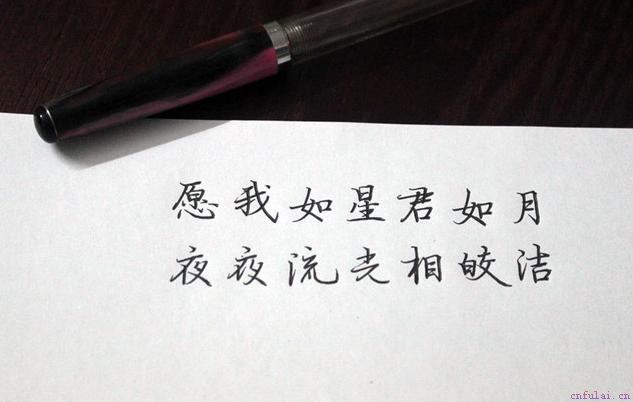 愿我如星君如月
夜夜流光相皎洁
cnfulai.cn